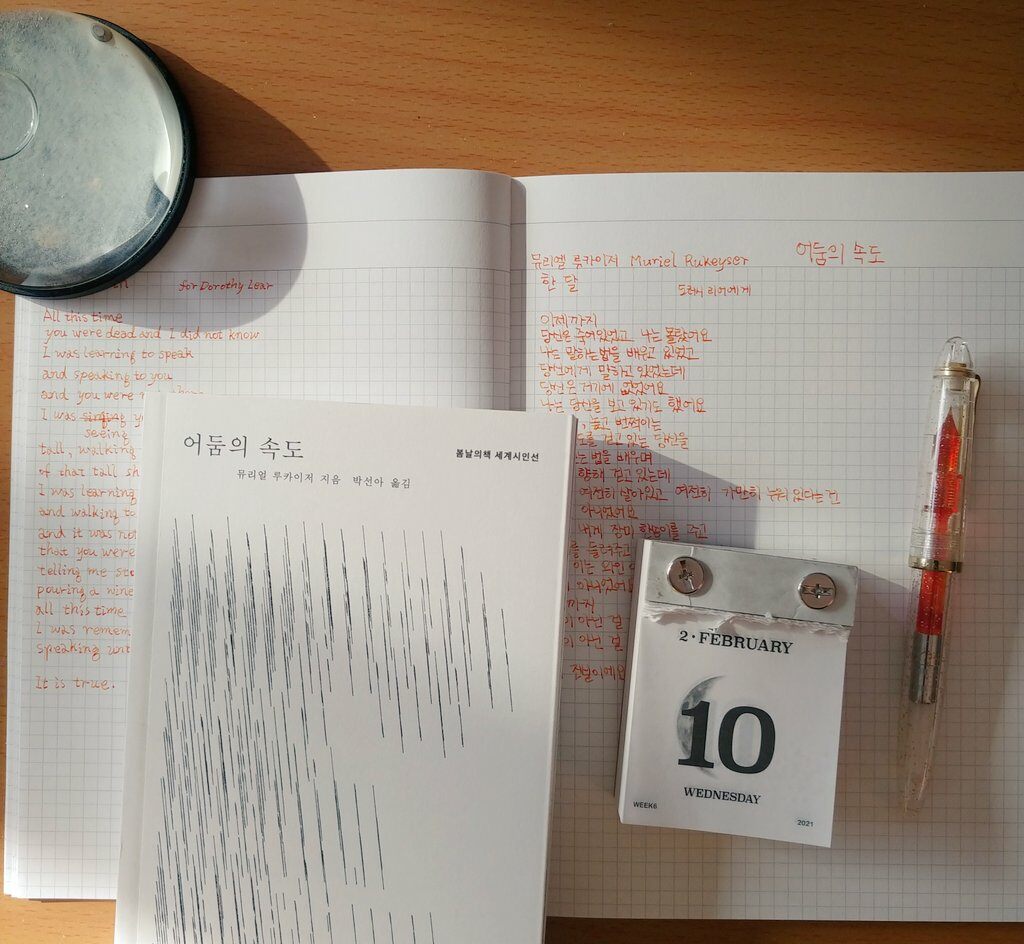 for Dorothy Lear
All this time
you were dead and I did not know
I was learning to speak
and speaking to you
and you were
I was singing
seeing
tall, walking
of that tall
I was learning
and walking to
and it was not
that you were
telling me
pouring a wine
all this time
I was
speaking
It is true.
뮤리엘 루카이저 Muriel Rukeyser 어둠의 속도
한 달
도러시 리어에게
이제까지
당신은 죽어있었고 나는 몰랐어요
나는 말하는 법을 배우고 있었고
당신에게 말하고 있었는데
당신은 거기에 없었어요
나는 당신을 보고 있기도 했어요
높고 번쩍이는
걷고 있는 당신을
법을 배우며
향해 걷고 있는데
여전히 살아있고 여전히 가만히 누워 있다는 건
아니었어요
내게 장미 한송이를 주고
들려주고
까지
아닌 걸
아닌 걸
진실이에요
어둠의 속도
봄날의책 세계시인선
뮤리엘 루카이저 지음 박선아 옮김
2·FEBRUARY
10
WEDNESDAY
WEEK6
2021